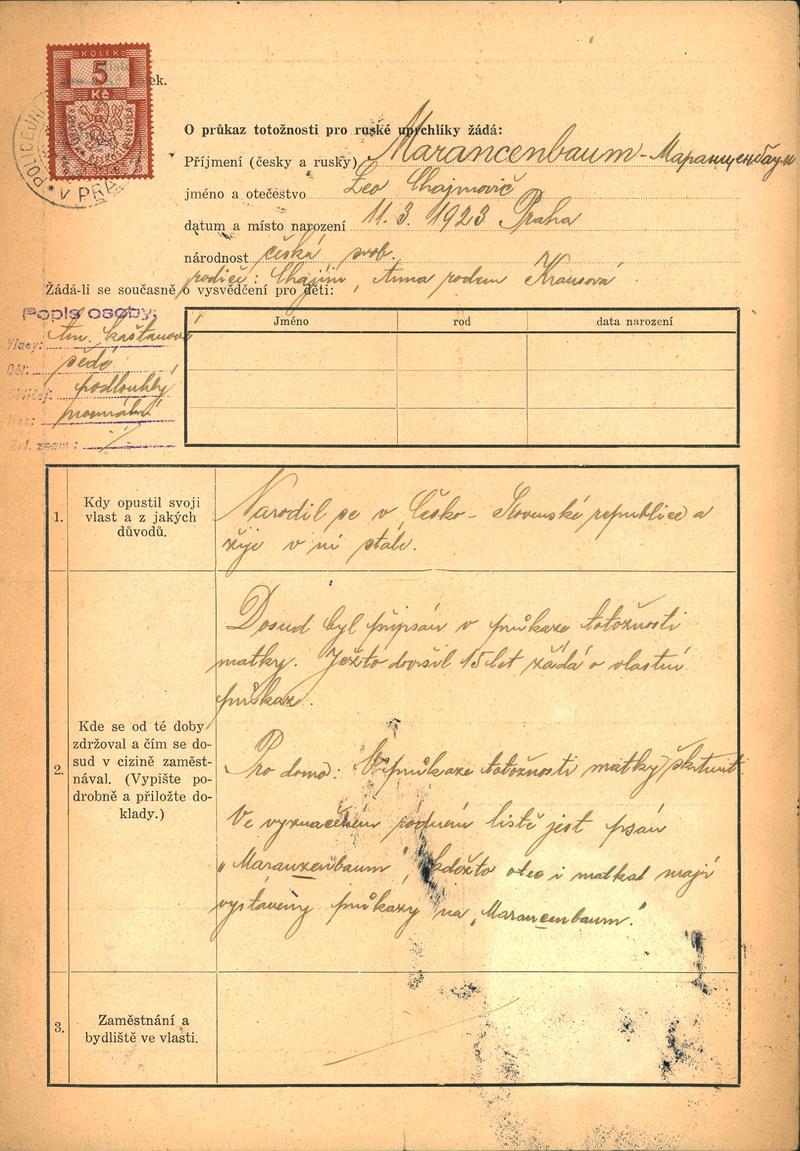 KOLEK
5
Kč
ek.
POLICEJN
V PRA
O průkaz totožnosti pro ruské uprchlíky žádá:
Příjmení (česky a rusky) Marancenbaum - Маранценбаум
jméno a otečestvo Leo Chajmovič
datum a místo narození 11. 3. 1923 Praha
národnost česká,
rodiče: Chajim, Anna rodem Krausová
Žádá-li se současně o vysvědčení pro děti:
Popis osoby:
Vlasy: tm. kaštanové
Oči: šedé
Obličej: podlouhlý
Nos: normální
Zvl. znam:
Jméno
rod
data narození
1.
Kdy opustil svoji
vlast a z jakých
důvodů.
Narodil se v Česko-Slovenské republice a
žije v ní stále.
2.
Kde se od té doby
zdržoval a čím se do-
sud v cizině zaměst-
nával. (Vypište po-
drobně a přiložte do-
klady.)
Dosud byl připsán v průkaze totožnosti
matky. Ježto dovršil 15 let žádá o vlastní
průkaz.
Pro domo: V průkaze totožnosti matky škrtnut.
Ve vyznačeném rodném listě jest psán
„Maranzenbaum", kdežto otec i matka mají
vystaveny průkazy na „Marancenbaum".
3.
Zaměstnání a
bydliště ve vlasti.